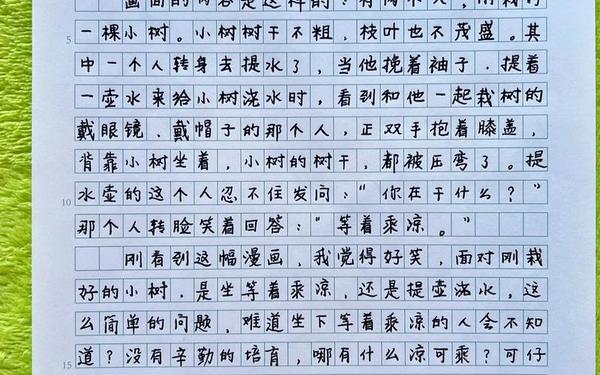 画面的内容是这样的：有两个人，刚栽好
5
一棵小树。小树树干不粗，枝叶也不茂盛。其
中一个人转身去提水了，当他挽着袖子、提着
一壶水来给小树浇水时，看到和他一起栽树的
戴眼镜、戴帽子的那个人，正双手抱着膝盖，
背靠小树坐着，小树的树干，都被压弯了。提
10
水壶的这个人忍不住发问：“你在干什么？”
那个人转脸笑着回答：“等着乘凉。”
刚看到这幅漫画，我觉得好笑，面对刚栽
好的小树，是坐等着乘凉，还是提壶浇水，这
么简单的问题，难道坐下等着乘凉的人会不知
15
道？没有辛勤的培育，哪有什么凉可乘？可仔